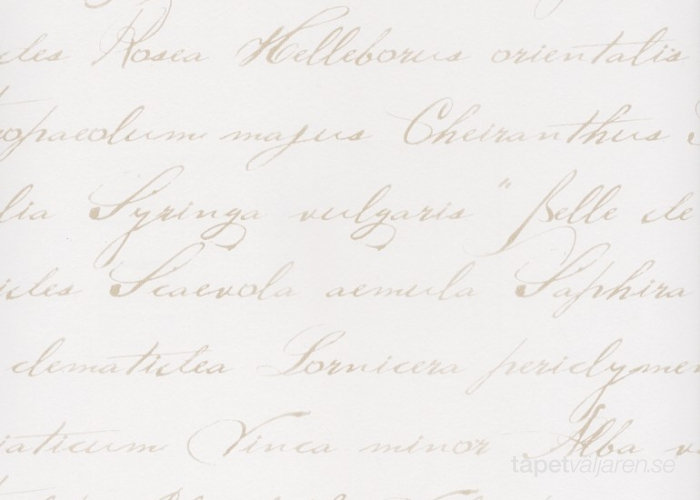 des Rosea Helleborus orientalis
opaeolum majus Cheiranthus
lia Syringa vulgaris "Belle de
ides Scaevola aemula Saphira
clematidea Lornicera periclymen
iaticum Vinca minor Alba v
tapetväljaren.se